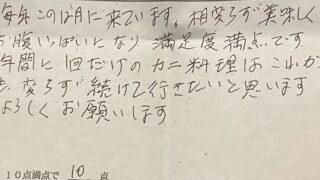 毎年この12月に来ています。相変らず美味しく
お腹いっぱいになり 満足度満点です
年間に1回だけのカニ料理はこれか
も変らず続けて行きたいと思います
よろしくお願いします
10点満点で 10 点